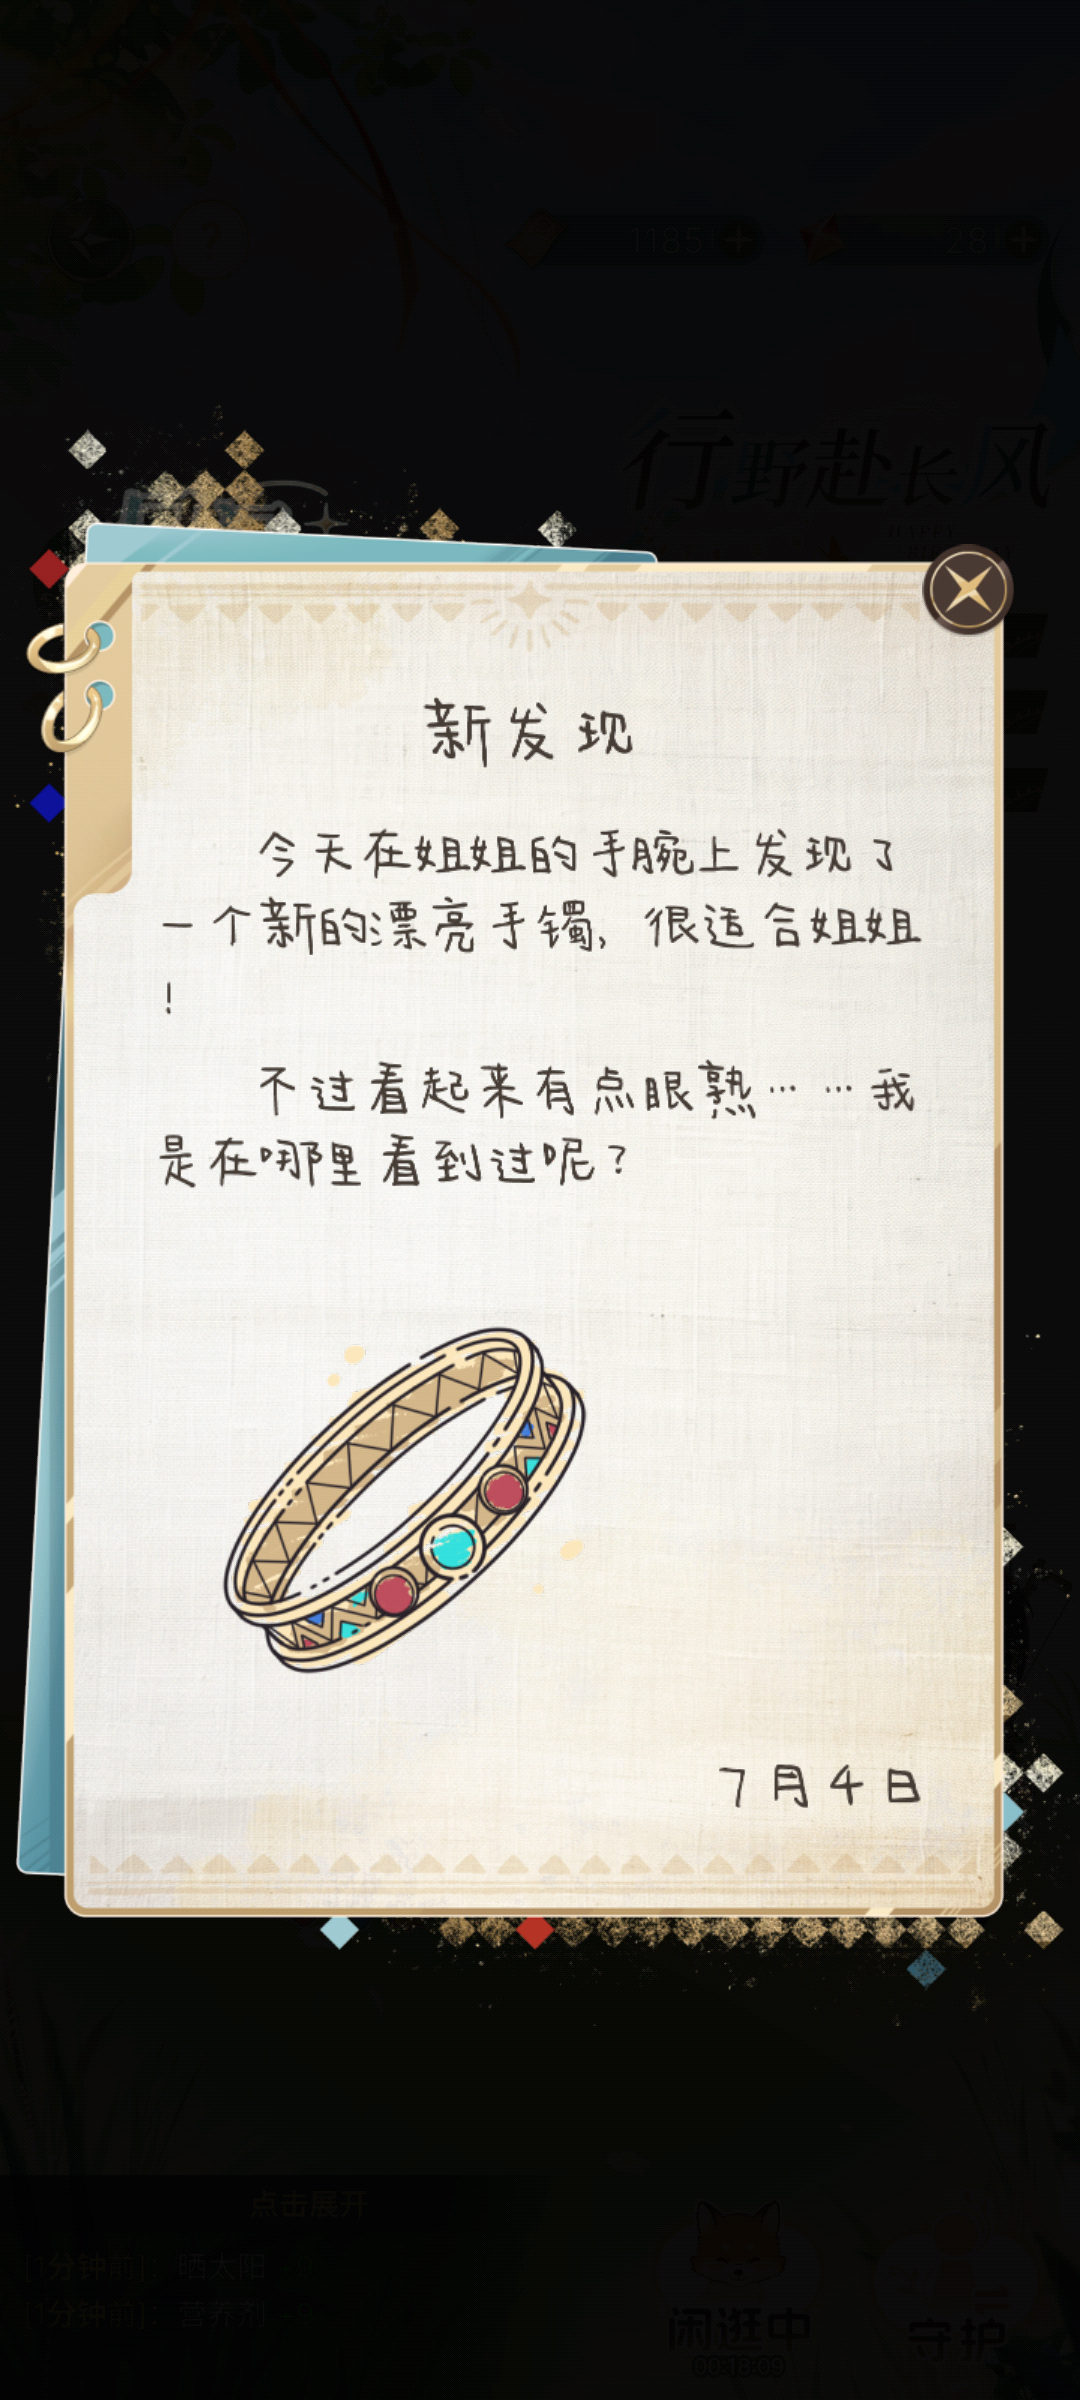 1185
28
行野赴长风
新发现
今天在姐姐的手腕上发现了
一个新的漂亮手镯，很适合姐姐
！
不过看起来有点眼熟……我
是在哪里看到过呢？
7月4日
点击展开
[1分钟前]：晒太阳 +9
[1分钟前]：营养剂
闲逛中
守护
00:18:09